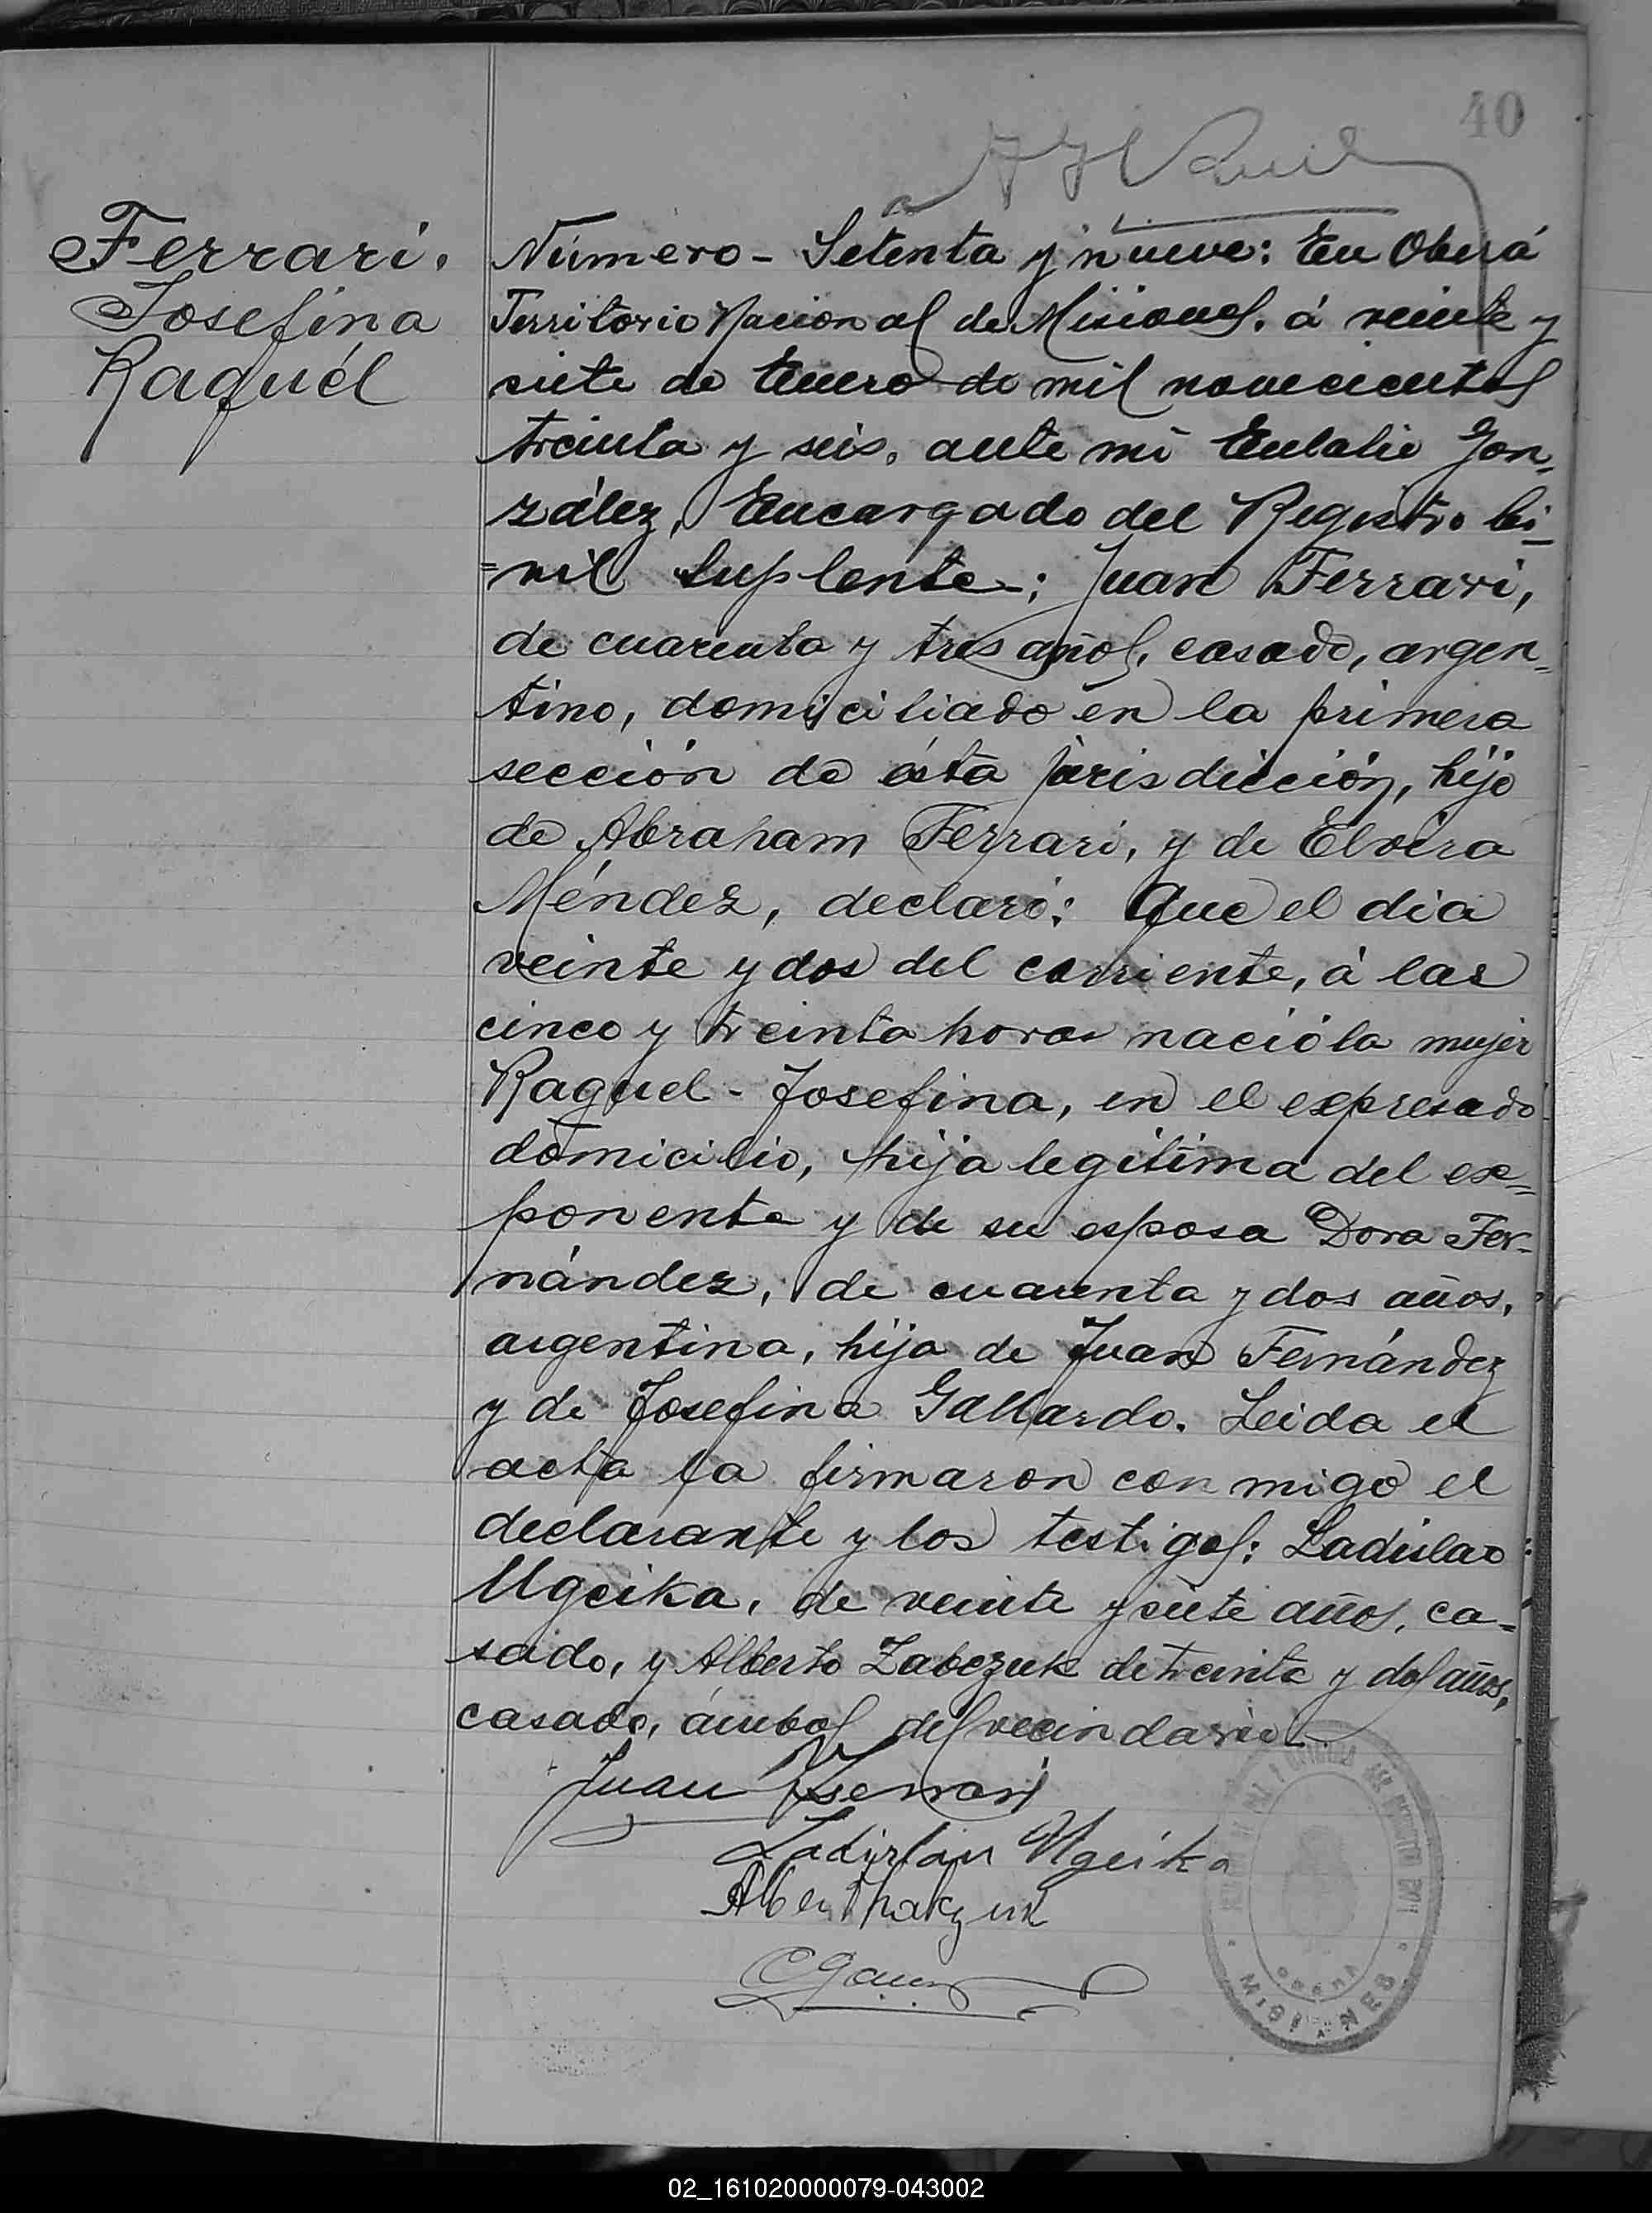 40
Ferrari.
Josefina
Raquél
Número - Setenta y nueve: En Oberá
Territorio Nacional de Misiones. á veinte y
siete de Enero de mil novecientos
treinta y seis. ante mi Eulalio Gon-
zález, Encargado del Registro Ci-
=vil Suplente; Juan Ferrari,
de cuarenta y tres años, casado, argen=
tino, domiciliado en la primera
sección de ésta jurisdicción, hijo
de Abraham Ferrari, y de Elvira
Méndez, declaró: Que el dia
veinte y dos del corriente, á las
cinco y treinta horas nació la mujer
Raquel - Josefina, en el expresado
domicilio, hija legitima del ex=
ponente y de su esposa Dora Fer-
nández, de cuarenta y dos años,
argentina, hija de Juan Fernández
y de Josefina Gallardo. Leida el
acta la firmaron conmigo el
declarante y los testigos: Ladislao
Ugeika, de veinte y siete años, ca=
sado, y Alberto Zabczuk de treinta y dos años,
casado, ámbos del vecindario.
Juan Ferrari
Ladislau Ugeika
MISIONES
02_161020000079-043002